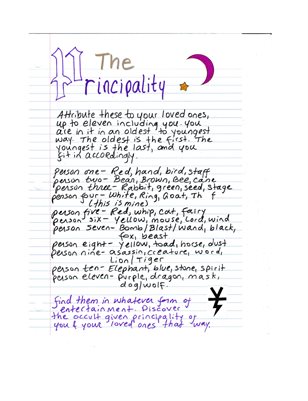 The
Principality
Attribute these to your loved ones,
up to eleven including you. you
are in it in an oldest to youngest
way. The oldest is the first. The
youngest is the last, and you
fit in accordingly.
person one- Red, hand, bird, staff
person two- Bean, Brown, Bee, cane
person three- Rabbit, green, seed, stage
person four- White, Ring, Goat, Th f
(this is mine)
person five- Red, whip, cat, fairy
person six- Yellow, mouse, Lord, wind
person seven- Bomb/Blast/wand, black,
fox, beast
person eight- yellow, toad, horse, dust
person nine- asassin, creature, word,
Lion/Tiger
person ten- Elephant, blue, stone, spirit
person eleven- purple, dragon, mask,
dog/wolf.
find them in whatever form of
entertainment. Discover
the occult given principality of
you & your loved ones that way.